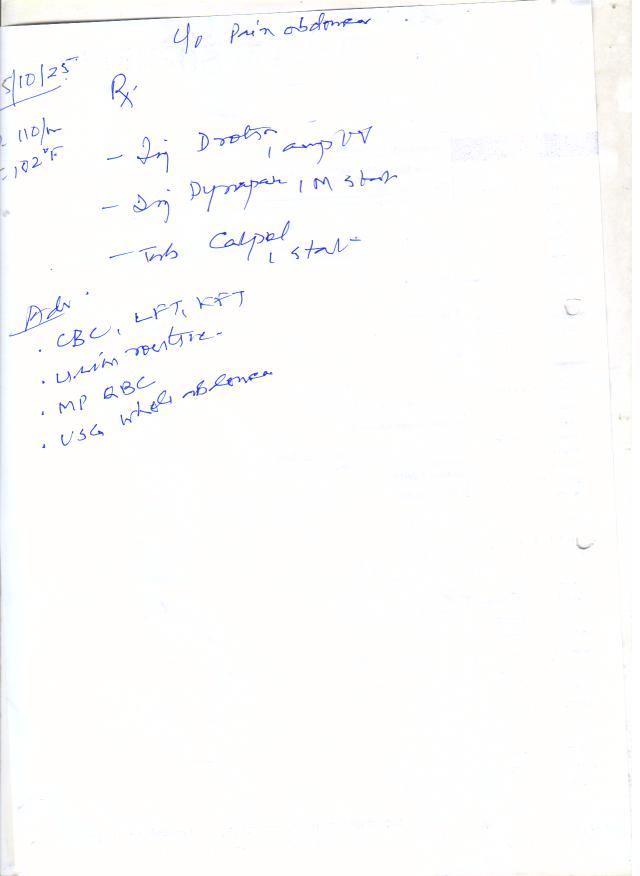 C/o Pain abdomen
5/10/25
Rx
110/m
102°F
- Inj Drotin 1 amp IV
- Inj Dynapar IM stat
- Tab Calpol 1 stat
Adv.
. CBC, LFT, KFT
. Urine routine.
. MP QBC
. USG whole abdomen